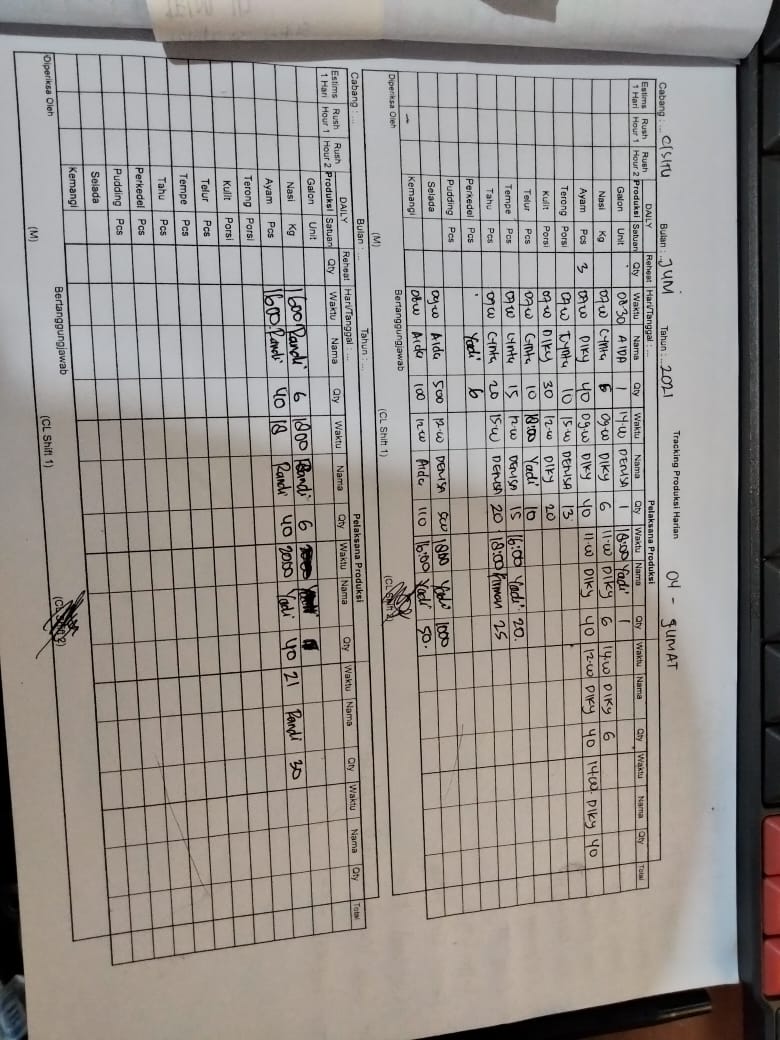 Tracking Produksi Harian 04 - JUMAT
Cabang : ... CISITU Bulan : .. JUNI Tahun : .. 2021
Estims 1 Hari Rush Hour 1 Rush Hour 2 DAILY Produksi Satuan Reheat Qty Hari/Tanggal : ... Pelaksana Produksi
Waktu Nama Qty Waktu Nama Qty Waktu Nama Qty Waktu Nama Qty Waktu Nama Qty Total
Galon Unit 08.30 AIDA 1 14.00 DENISA 1 18:00 Yadi 1
Nasi Kg 07.00 Cynta 09.00 DIKY 6 11.00 DIKY 6 14.00 DIKY 6
Ayam Pcs 3 07.00 DIKY 40 09.00 DIKY 40 11.00 DIKY 40 12.00 DIKY 40 14.00 DIKY 40
Terong Porsi 07.00 Cynta 10 15.00 DENISA 13
Kulit Porsi 07.00 DIKY 30 12.00 DIKY 20
Telur Pcs 07.00 Cynta 10 18:00 Yadi 10
Tempe Pcs 07.00 Cynta 15 12.00 DENISA 15 16:00 Yadi 20.
Tahu Pcs 07.00 Cynta 20 15.00 DENISA 20 18:00 25
Perkedel Pcs Yadi 6
Pudding Pcs
Selada 09.00 Aida 500 12.00 DENISA 500 18:00 Yadi 1000
Kemangi 08.00 Aida 100 12.00 Aida 110 16:00 Yadi 50.
Diperiksa Oleh Bertanggungjawab
(M) (CL Shift 1) (CL Shift 2)
Cabang : ... Bulan : ... Tahun :
Estims 1 Hari Rush Hour 1 Rush Hour 2 DAILY Produksi Satuan Reheat Qty Hari/Tanggal : ... Pelaksana Produksi
Waktu Nama Qty Waktu Nama Qty Waktu Nama Qty Waktu Nama Qty Waktu Nama Qty Total
Galon Unit
Nasi Kg 1600 Randi 6 1800 Randi 6
Ayam Pcs 1600. Randi 40 18 Randi 40 2000 Yadi 40 21 Randi 30
Terong Porsi
Kulit Porsi
Telur Pcs
Tempe Pcs
Tahu Pcs
Perkedel Pcs
Pudding Pcs
Selada
Kemangi
Diperiksa Oleh Bertanggungjawab
(M) (CL Shift 1) (CL Shift 2)